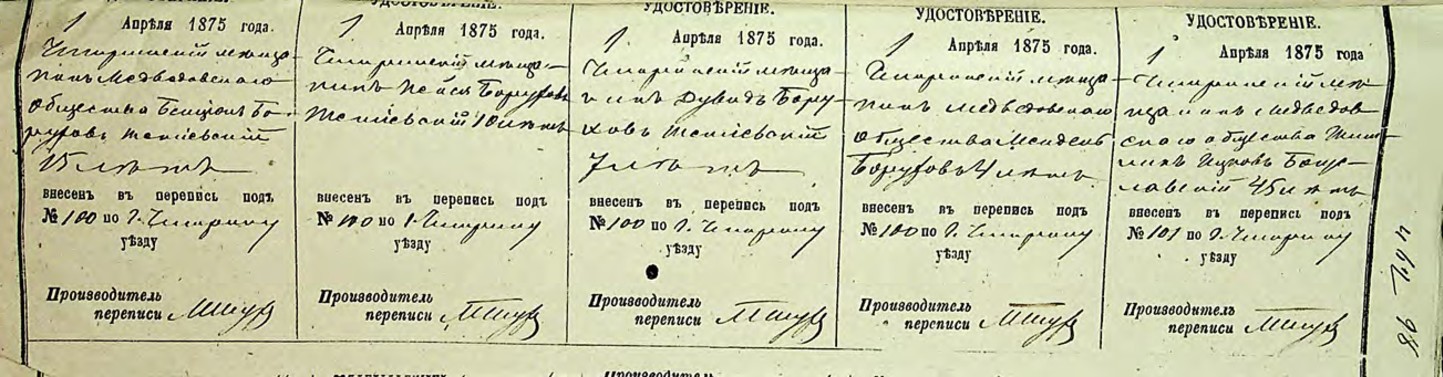 УДОСТОВѢРЕНІЕ.
1 Апрѣля 1875 года.
Чигиринскій мѣща-
нинъ Медведовскаго
общества Бенціонъ Бо-
руховъ
15 лѣтъ
внесенъ въ перепись подъ
№ 100 по г. Чигирину
уѣзду
Производитель
переписи
УДОСТОВѢРЕНІЕ.
1 Апрѣля 1875 года.
Чигиринскій мѣща-
нинъ Боруховъ
10 лѣтъ
внесенъ въ перепись подъ
№ 100 по г. Чигирину
уѣзду
Производитель
переписи
УДОСТОВѢРЕНІЕ.
1 Апрѣля 1875 года.
Чигиринскій мѣща-
нинъ Дувидъ Бору-
ховъ
7 лѣтъ
внесенъ въ перепись подъ
№ 100 по г. Чигирину
уѣзду
Производитель
переписи
УДОСТОВѢРЕНІЕ.
1 Апрѣля 1875 года.
Чигиринскій мѣща-
нинъ Медведовскаго
общества Мендель
Боруховъ 4 лѣтъ
внесенъ въ перепись подъ
№ 100 по г. Чигирину
уѣзду
Производитель
переписи
УДОСТОВѢРЕНІЕ.
1 Апрѣля 1875 года
Чигиринскій мѣ-
щанинъ Медведов-
скаго общества
Ицковъ Богу-
славскій 45 лѣтъ
внесенъ въ перепись подъ
№ 101 по г. Чигирину
уѣзду
Производитель
переписи
98
Производитель